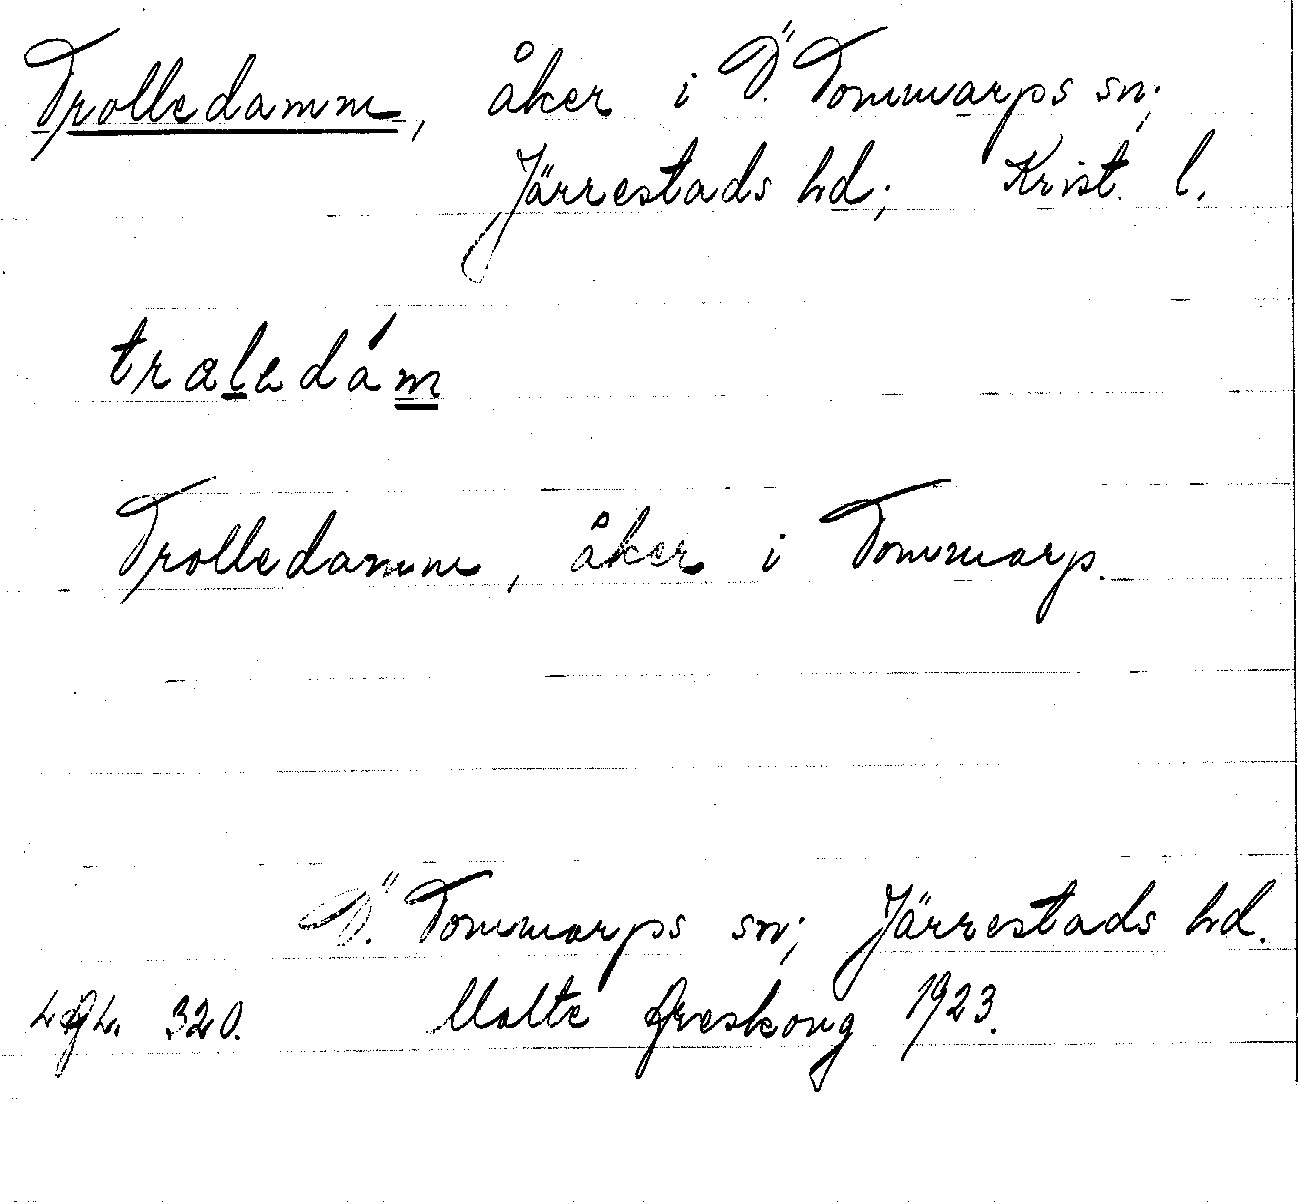 Trolledamm, åker i Ö. Tommarps sn;
Järrestads hd; Krist. l.
traledám
Trolledamm, åker i Tommarp.
Ö. Tommarps sn; Järrestads hd.
320. Malte 1923.